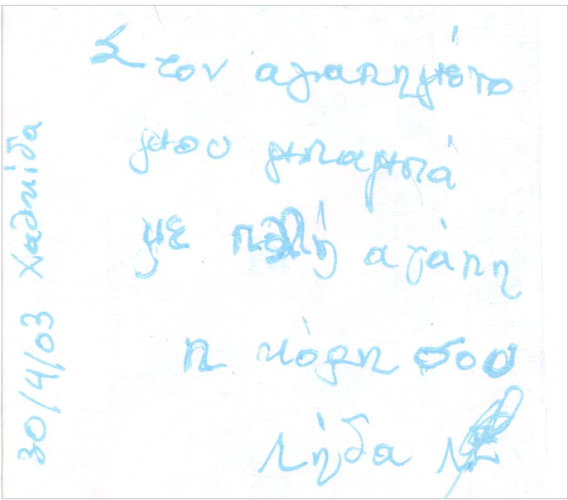 Στον αγαπημένο
μου μπαμπά
με πολή αγάπη
η κόρη σου
Λήδα
30/4/03 Χαλκίδα